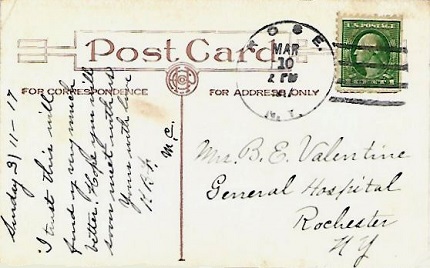 Post Card
FOR CORRESPONDENCE
FOR ADDRESS ONLY
ROSE
MAR
10
2 PM
N.Y.
U.S. POSTAGE
Sunday 3/11-17
I trust this will
find you very much
better. Hope you will
soon meet with us
Yours with love
Mrs. B. E. Valentine
General Hospital
Rochester
N Y